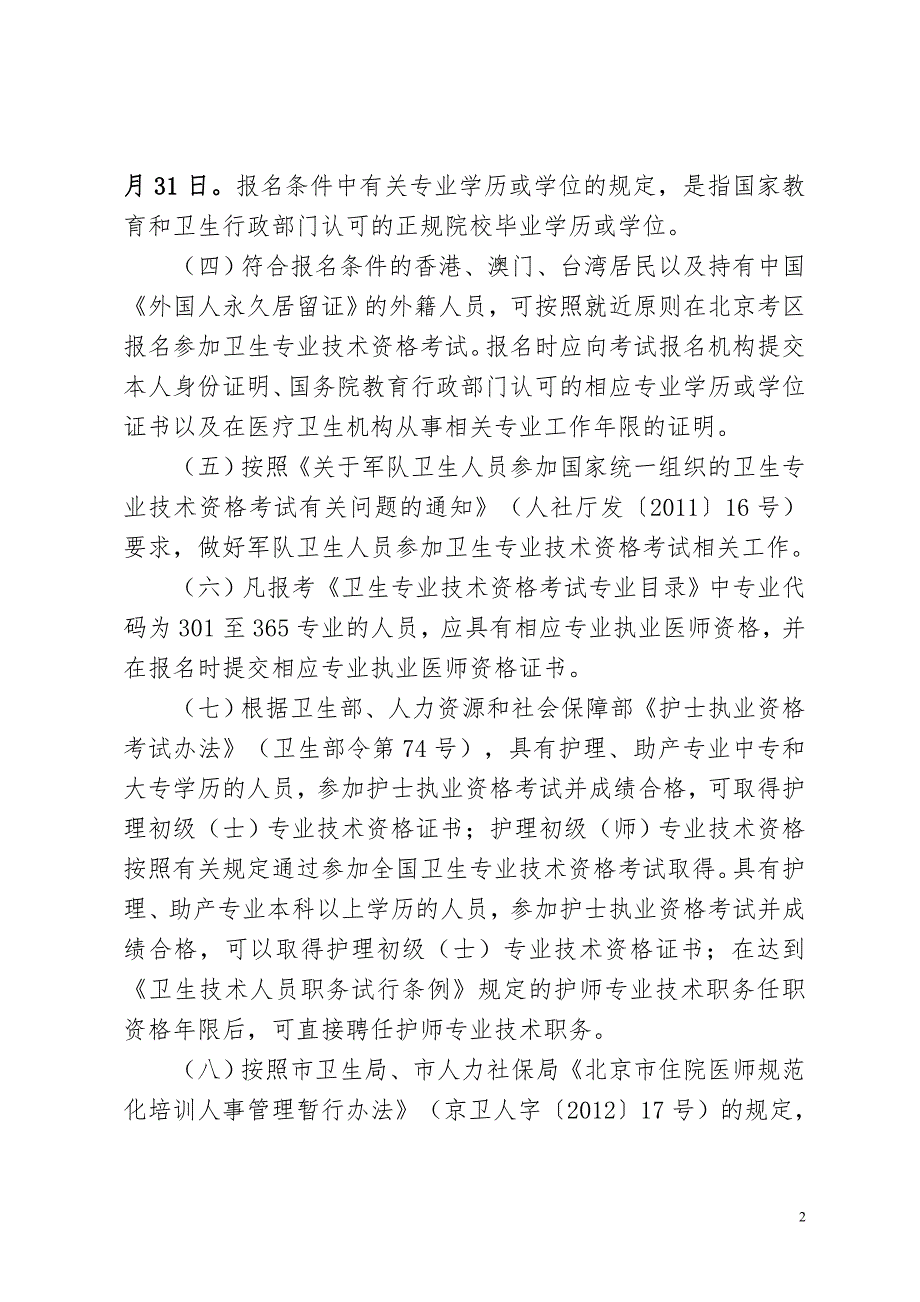 月 31 日。报名条件中有关专业学历或学位的规定，是指国家教
育和卫生行政部门认可的正规院校毕业学历或学位。
（四）符合报名条件的香港、澳门、台湾居民以及持有中国
《外国人永久居留证》的外籍人员，可按照就近原则在北京考区
报名参加卫生专业技术资格考试。报名时应向考试报名机构提交
本人身份证明、国务院教育行政部门认可的相应专业学历或学位
证书以及在医疗卫生机构从事相关专业工作年限的证明。
（五）按照《关于军队卫生人员参加国家统一组织的卫生专
业技术资格考试有关问题的通知》（人社厅发〔2011〕16 号）
要求，做好军队卫生人员参加卫生专业技术资格考试相关工作。
（六）凡报考《卫生专业技术资格考试专业目录》中专业代
码为 301 至 365 专业的人员，应具有相应专业执业医师资格，并
在报名时提交相应专业执业医师资格证书。
（七）根据卫生部、人力资源和社会保障部《护士执业资格
考试办法》（卫生部令第 74 号），具有护理、助产专业中专和
大专学历的人员，参加护士执业资格考试并成绩合格，可取得护
理初级（士）专业技术资格证书；护理初级（师）专业技术资格
按照有关规定通过参加全国卫生专业技术资格考试取得。具有护
理、助产专业本科以上学历的人员，参加护士执业资格考试并成
绩合格，可以取得护理初级（士）专业技术资格证书；在达到
《卫生技术人员职务试行条例》规定的护师专业技术职务任职
资格年限后，可直接聘任护师专业技术职务。
（八）按照市卫生局、市人力社保局《北京市住院医师规范
化培训人事管理暂行办法》（京卫人字〔2012〕17 号）的规定，
2